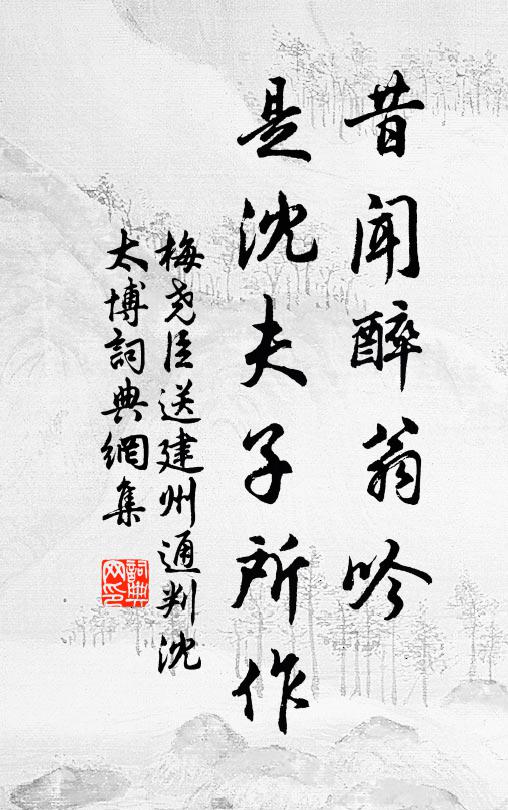 昔聞醉翁吟
是沈夫子所作
梅堯臣送建州通判沈
太博詞典網集
詞典
网印